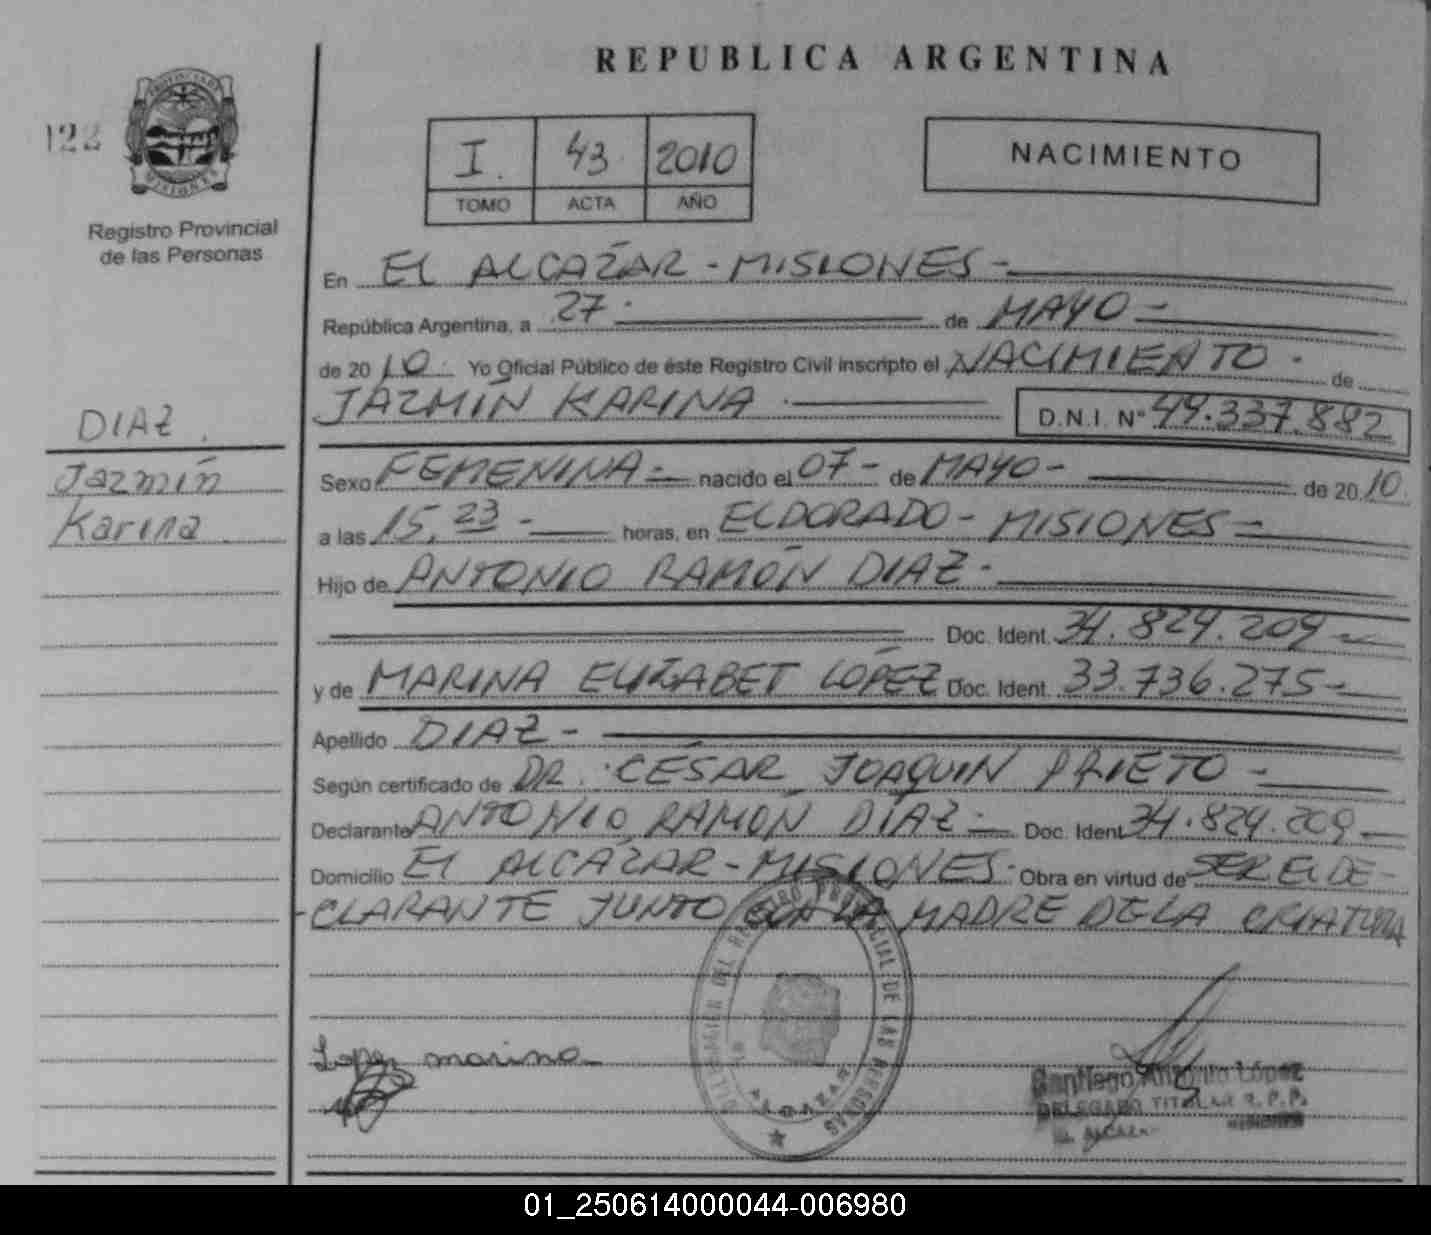 REPUBLICA ARGENTINA
122
PROVINCIA DE
MISIONES
Registro Provincial
de las Personas
I. 43 2010
TOMO ACTA AÑO
NACIMIENTO
En EL ALCAZAR - MISIONES -
República Argentina, a 27 - de MAYO -
de 20 10. Yo Oficial Público de éste Registro Civil inscripto el NACIMIENTO - de
JAZMÍN KARINA - D.N.I. Nº 49.337.882
DIAZ.
Jazmín
Karina.
Sexo FEMENINA - nacido el 07 - de MAYO - de 20 10.
a las 15,23 - horas, en ELDORADO - MISIONES -
Hijo de ANTONIO RAMÓN DIAZ -
Doc. Ident. 34.829.209 -
y de MARINA ELIZABET LÓPEZ Doc. Ident. 33.736.275 -
Apellido DIAZ -
Según certificado de DR. CÉSAR JOAQUIN PRIETO -
Declarante ANTONIO RAMÓN DÍAZ - Doc. Ident 34.829.209 -
Domicilio EL ALCAZAR - MISIONES - Obra en virtud de SER EL DE -
- CLARANTE JUNTO CON LA MADRE DE LA CRIATURA
DELEGACION DEL REGISTRO PROVINCIAL DE LAS PERSONAS
ALCAZAR
Lopez marina
Santiago Antonio López
DELEGADO TITULAR R.P.P.
MISIONES
EL ALCAZAR
01_250614000044-006980